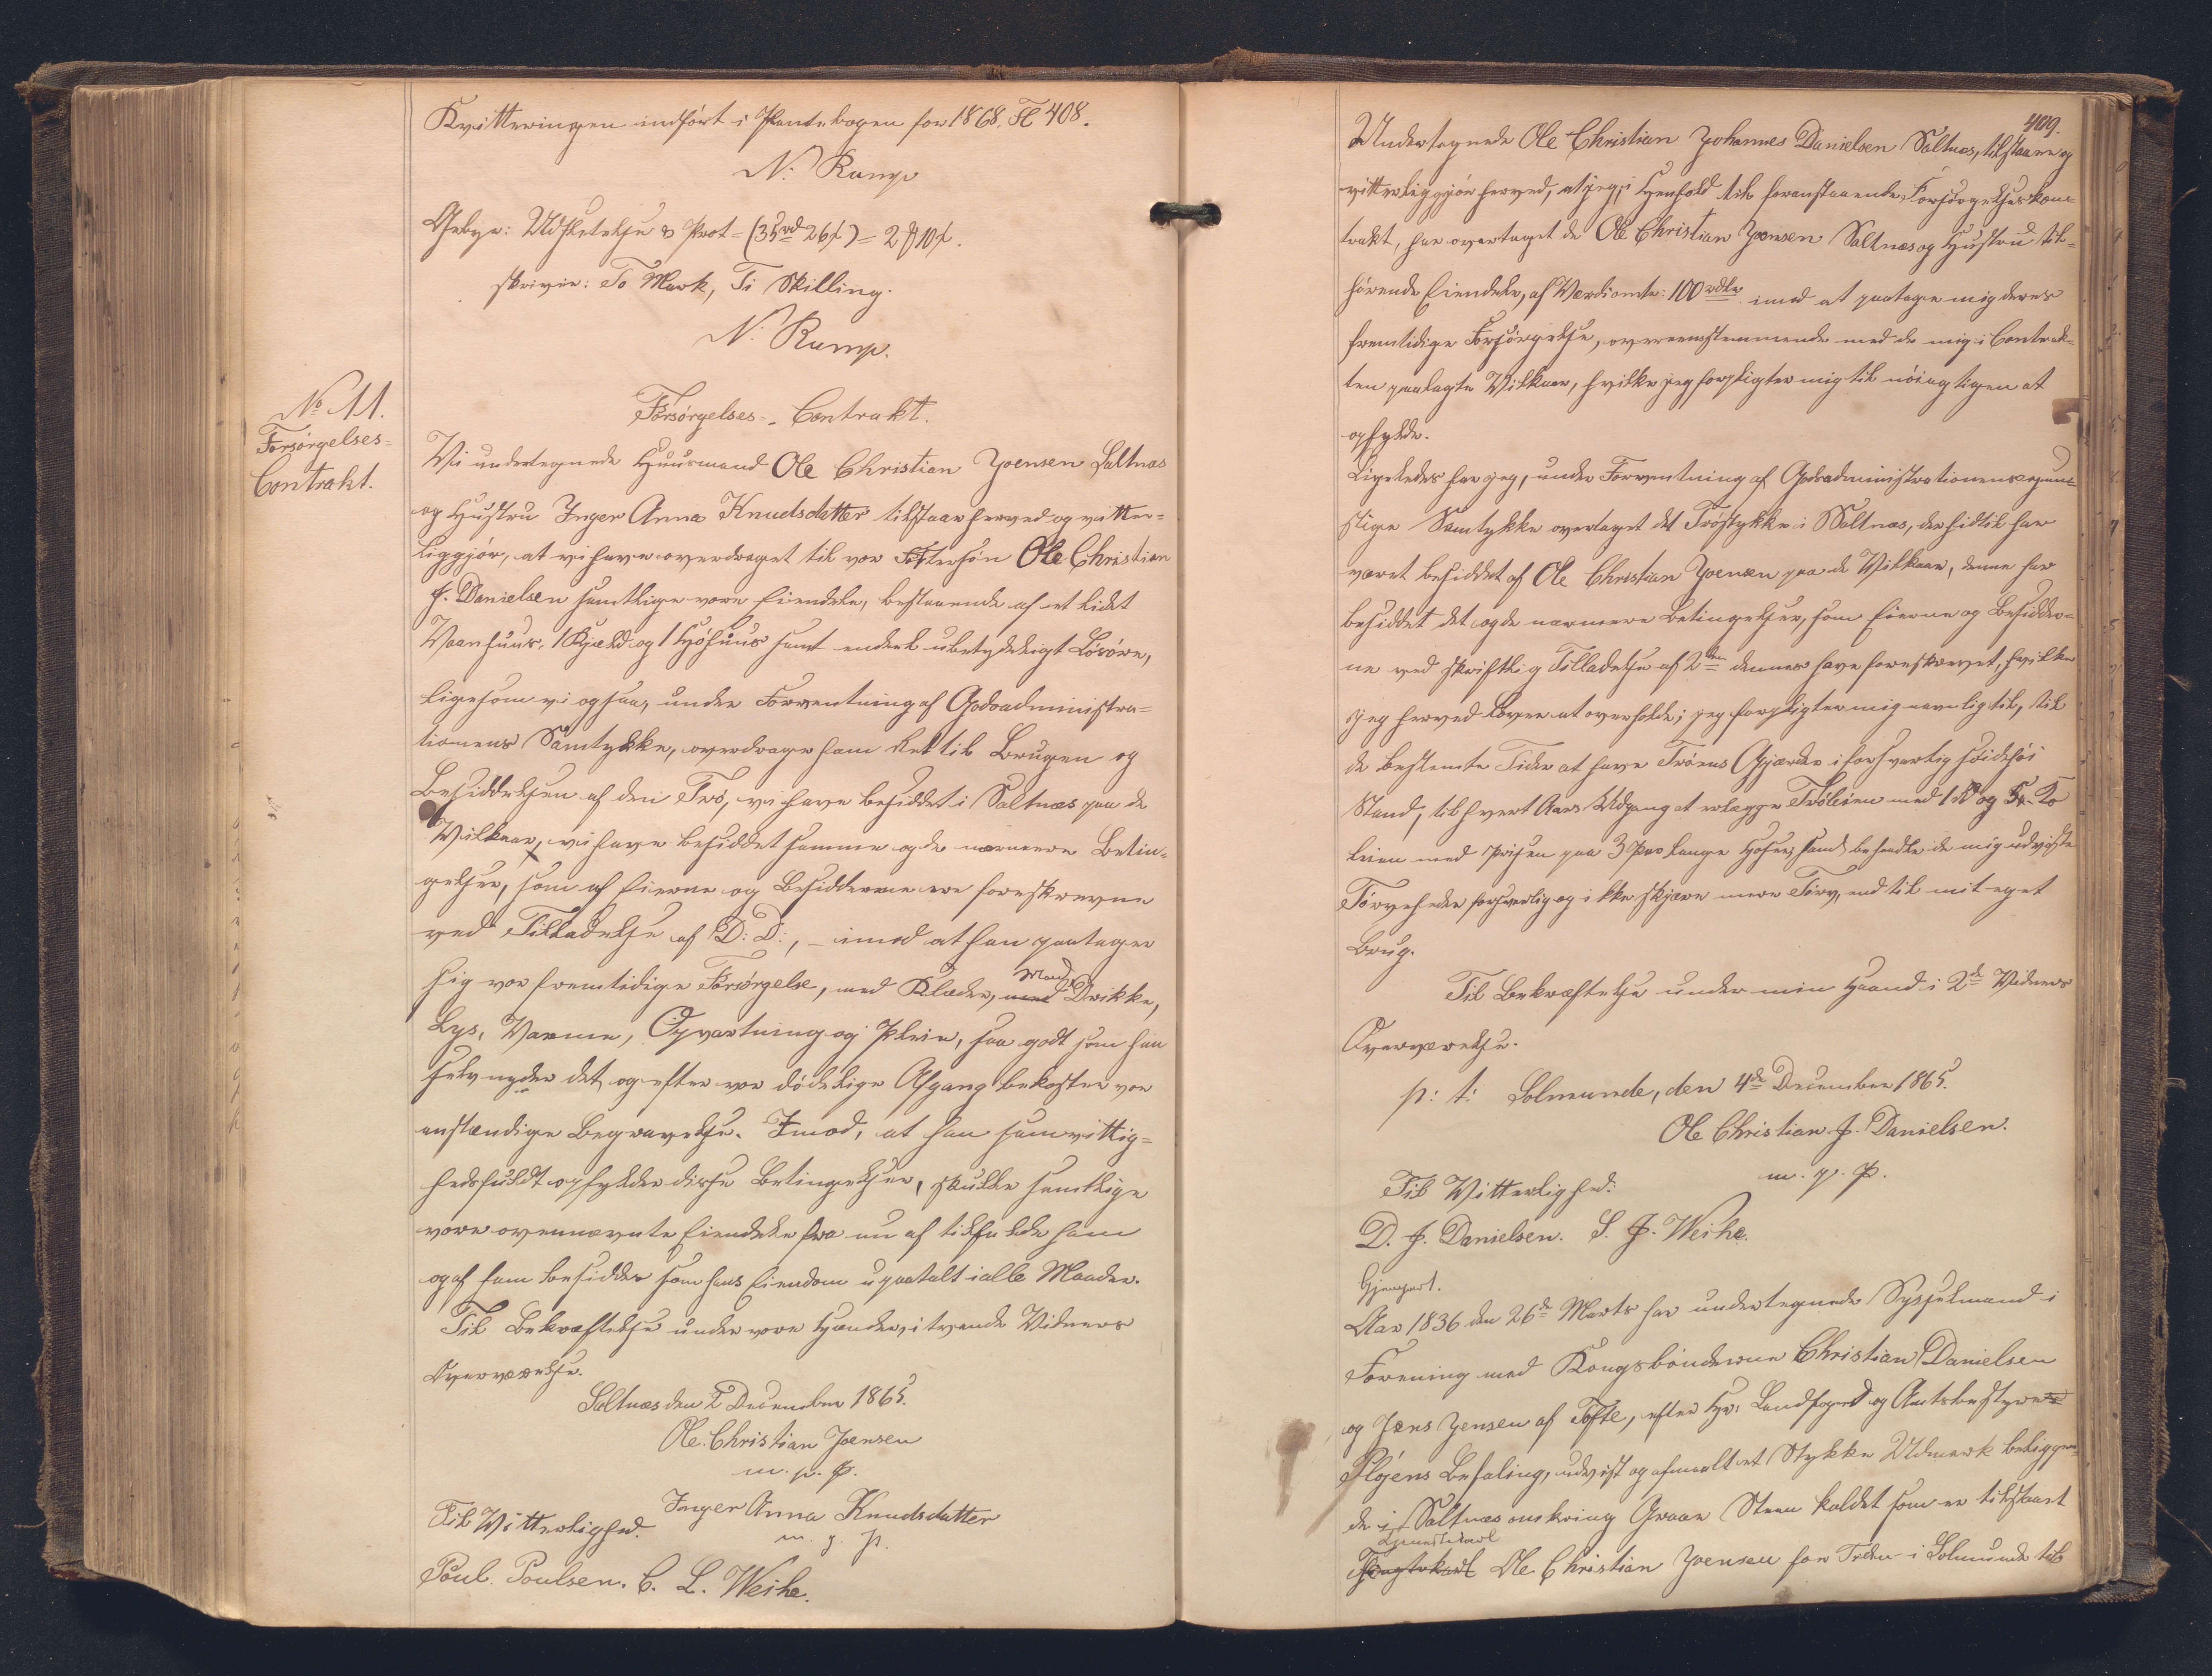 Kvitteringen indført i Pantebogen for 1868. Fol 408.
N. Rump
Gebyr: Udstedelse & Prot = (35rd 26ß) = 2 10ß.
skriver: To Mark, Ti Skilling.
N. Rump.
No 11.
Forsørgelses-
Contrakt.
Forsørgelses-Contrakt.
Vi undertegnede Huusmand Ole Christian Joensen Saltnæs
og Hustru Inger Anna Knudsdatter tilstaar herved og vitter-
liggjør, at vi have overdraget til vor Fostersøn Ole Christian
J. Danielsen samtlige vore Eiendele, bestaaende af et lidet
Vaanhuus, 1 Kjeld og 1 Høhuus samt endeel ubetydeligt Løsøre,
ligesom vi ogsaa, under Forventning af Godsadministra-
tionens Samtykke, overdrager ham Ret til Brugen og
Besiddelsen af den Trø, vi have besiddet i Saltnæs paa de
Vilkaar, vi have besiddet samme og de nærmere Betin-
gelser, som af Eierne og Besidderne ere foreskrevne
ved Tilladelse af D: D:, – imod at han paatager
sig vor fremtidige Forsørgelse, med Klæder, Mad, Drikke,
Lys, Varme, Opvartning og Pleie, saa godt som han
selv nyder det, og efter vor dødelige Afgang bekoster vor
anstændige Begravelse. Imod, at han samvittig-
hedsfuldt opfylder disse Betingelser, skulle samtlige
vore ovennævnte Eiendele fra nu af tilfalde ham
og af ham besiddes som hans Eiendom upaatalt i alle Maader.
Til Bekræftelse under vore Hænder, i tvende Vidners
Overværelse.
Saltnæs den 2 December 1865.
Ole Christian Joensen
m. p. P.
Inger Anna Knudsdatter
m. p. P.
Til Vitterlighed.
Poul Poulsen. C. L. Weihe.
409.
Undertegnede Ole Christian Johannes Danielsen Saltnæs, tilstaar og
vitterliggjør herved, at jeg, i Henhold til foranstaaende Forsørgelseskon-
trakt, har overtaget de Ole Christian Joensen Saltnæs og Hustru til-
hørende Eiendele, af Værdi omtr: 100 rdlr imod at paatage mig deres
fremtidige Forsørgelse, overeensstemmende med de mig i Contrak-
ten paalagte Vilkaar, hvilke jeg forpligter mig til nøiagtigen at
opfylde.
Ligeledes har jeg, under Forventning af Godsadministrationens gun-
stige Samtykke overtaget det Trøstykke i Saltnæs, der hidtil har
været besiddet af Ole Christian Joensen paa de Vilkaar, denne har
besiddet det og de nærmere Betingelser, som Eierne og Besidder-
ne ved skriftlig Tilladelse af 2den dennes have foreskrevet, hvilke
jeg herved lover at overholde; jeg forpligter mig navnlig til, til
de bestemte Tider at have Trøens Gjærder i forsvarlig
Stand, til hvert Aars Udgang at erlægge Trøleien med 1 og
leien med Prisen paa 3 Par lange Hoser, samt behandle de mig udviste
Tørveheder forsvarlig og ikke skjære mere Tørv, end til mit eget
Brug.
Til Bekræftelse under min Haand i 2de Vidners
Overværelse.
p: t: Solmunde, den 4de December 1865.
Ole Christian J. Danielsen.
m. p. P.
Til Vitterlighed:
D. J. Danielsen. S. J. Weihe.
Gjenpart.
Aar 1836 den 26de Marts har undertegnede Sysselmand i
Forening med Kongsbønderne Christian Danielsen
og Jens Jensen af Tofte, efter Hr. Landfoged og Amtsbestyrer
Pløjens Befaling, udvist og afmaalt et Stykke Udmark beliggen-
de i Saltnæs omkring Graae Steen kaldet som er tilstaaet
Tjenestekarl
Ole Christian Joensen for Tiden i Solmunde til